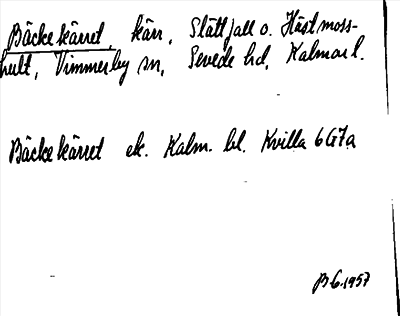 Bäckekärret, kärr, Slättfall o. Hästmoss-
hult, Vimmerby sn, Sevede hd, Kalmar l.
Bäckekärret ek. Kalm. bl. Kvilla 6G7a
B G. 1957